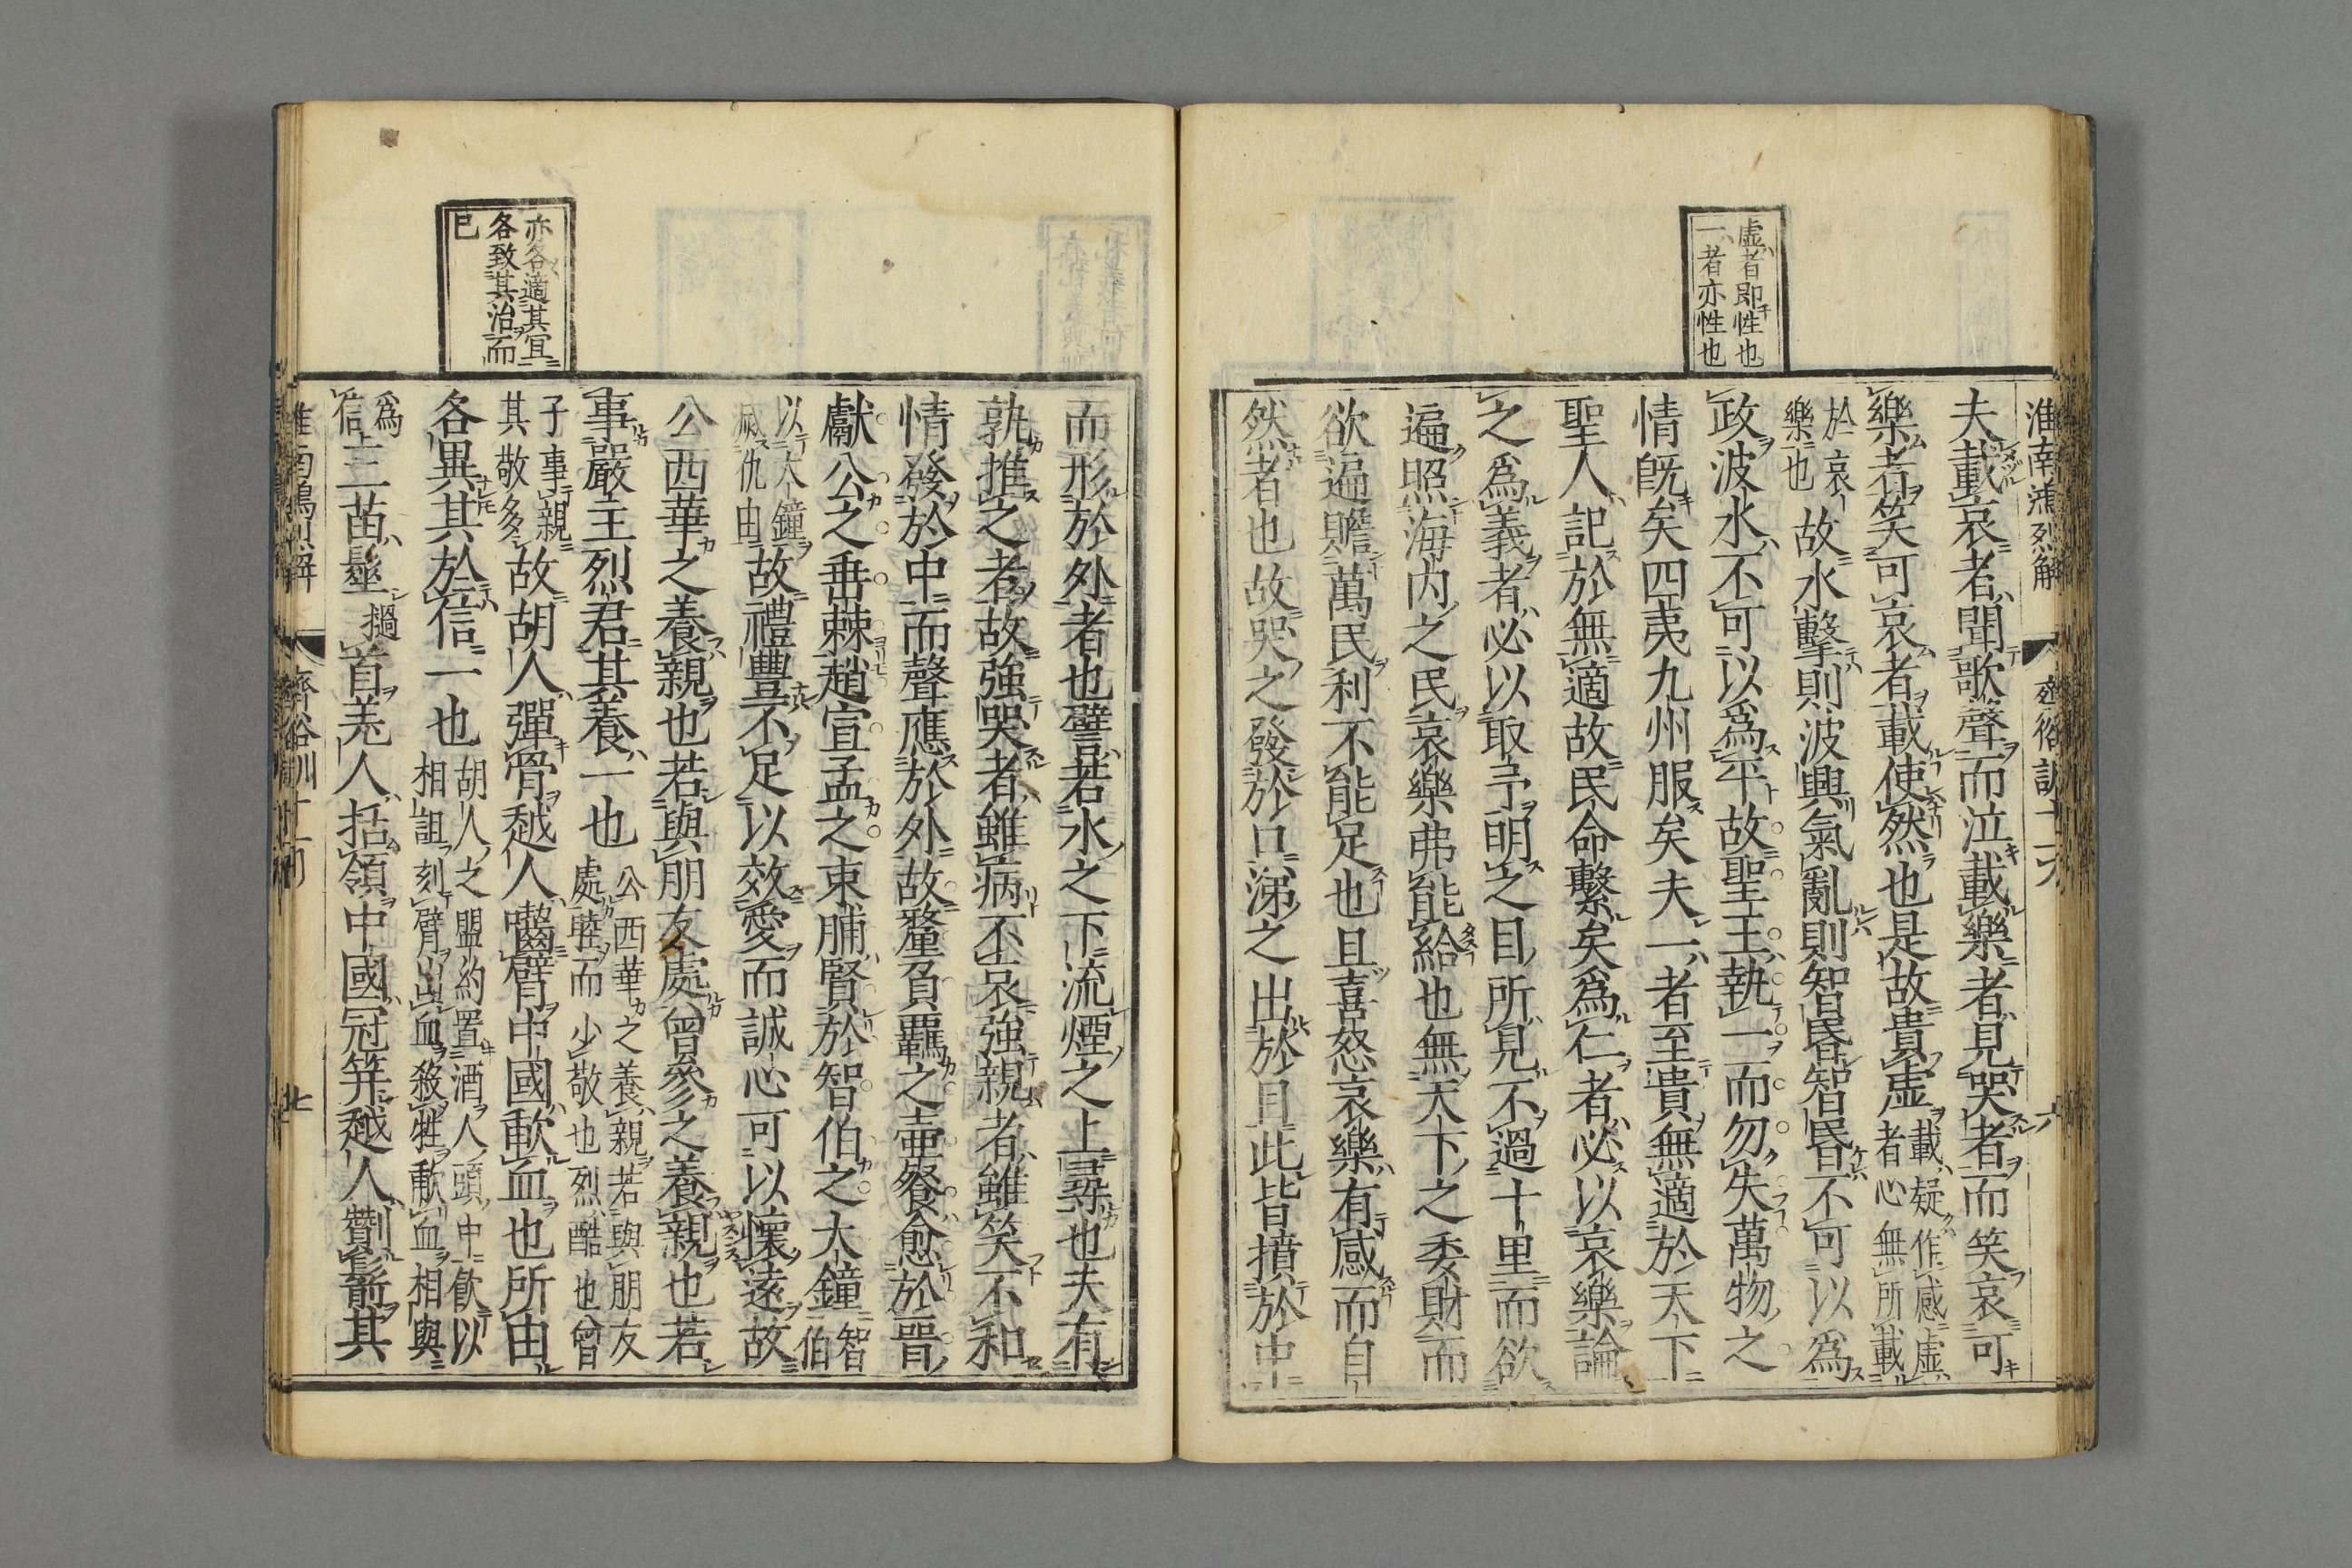 淮南鴻烈解
齊俗訓十一
六
虛者即性也
一者亦性也
夫載哀者聞歌聲而泣載樂者見哭者而笑哀可
樂者笑可哀者載使然也是故貴虛載疑作感虛
者心無所載
於哀
樂也故水擊則波興氣亂則智昬智昬不可以爲
政波水不可以爲平故聖王執一而勿失萬物之
情旣矣四夷九州服矣夫一者至貴無適於天下
聖人記於無適故民命繫矣爲仁者必以哀樂論
之爲義者必以取予明之目所見不過十里而欲
遍照海内之民哀樂弗能給也無天下之委財而
欲遍贍萬民利不能足也且喜怒哀樂有感而自
然者也故哭之發於口涕之出於目此皆憤於中
而形於外者也譬若水之下流煙之上尋也夫有
孰推之者故強哭者雖病不哀強親者雖笑不和
情發於中而聲應於外故釐負羈之壺餐愈於晉
獻公之垂棘趙宣孟之束脯賢於智伯之大鐘智
伯
以大鐘
滅仇由故禮豐不足以效愛而誠心可以懷遠故
公西華之養親也若與朋友處曾參之養親也若
事嚴主烈君其養一也公西華之養親若與朋友
處睦而少敬也烈酷也曾
子事親
其敬多故胡人彈骨越人囓臂中國歃血也所由
各異其於信一也胡人之盟約置酒人頭中飲以
相詛刻臂出血殺牲歃血相與
爲
信三苗髽首羗人括領中國冠笄越人劗鬋其
亦各適其宜
各致其治而
已
淮南鴻烈解
齊俗訓十一
七